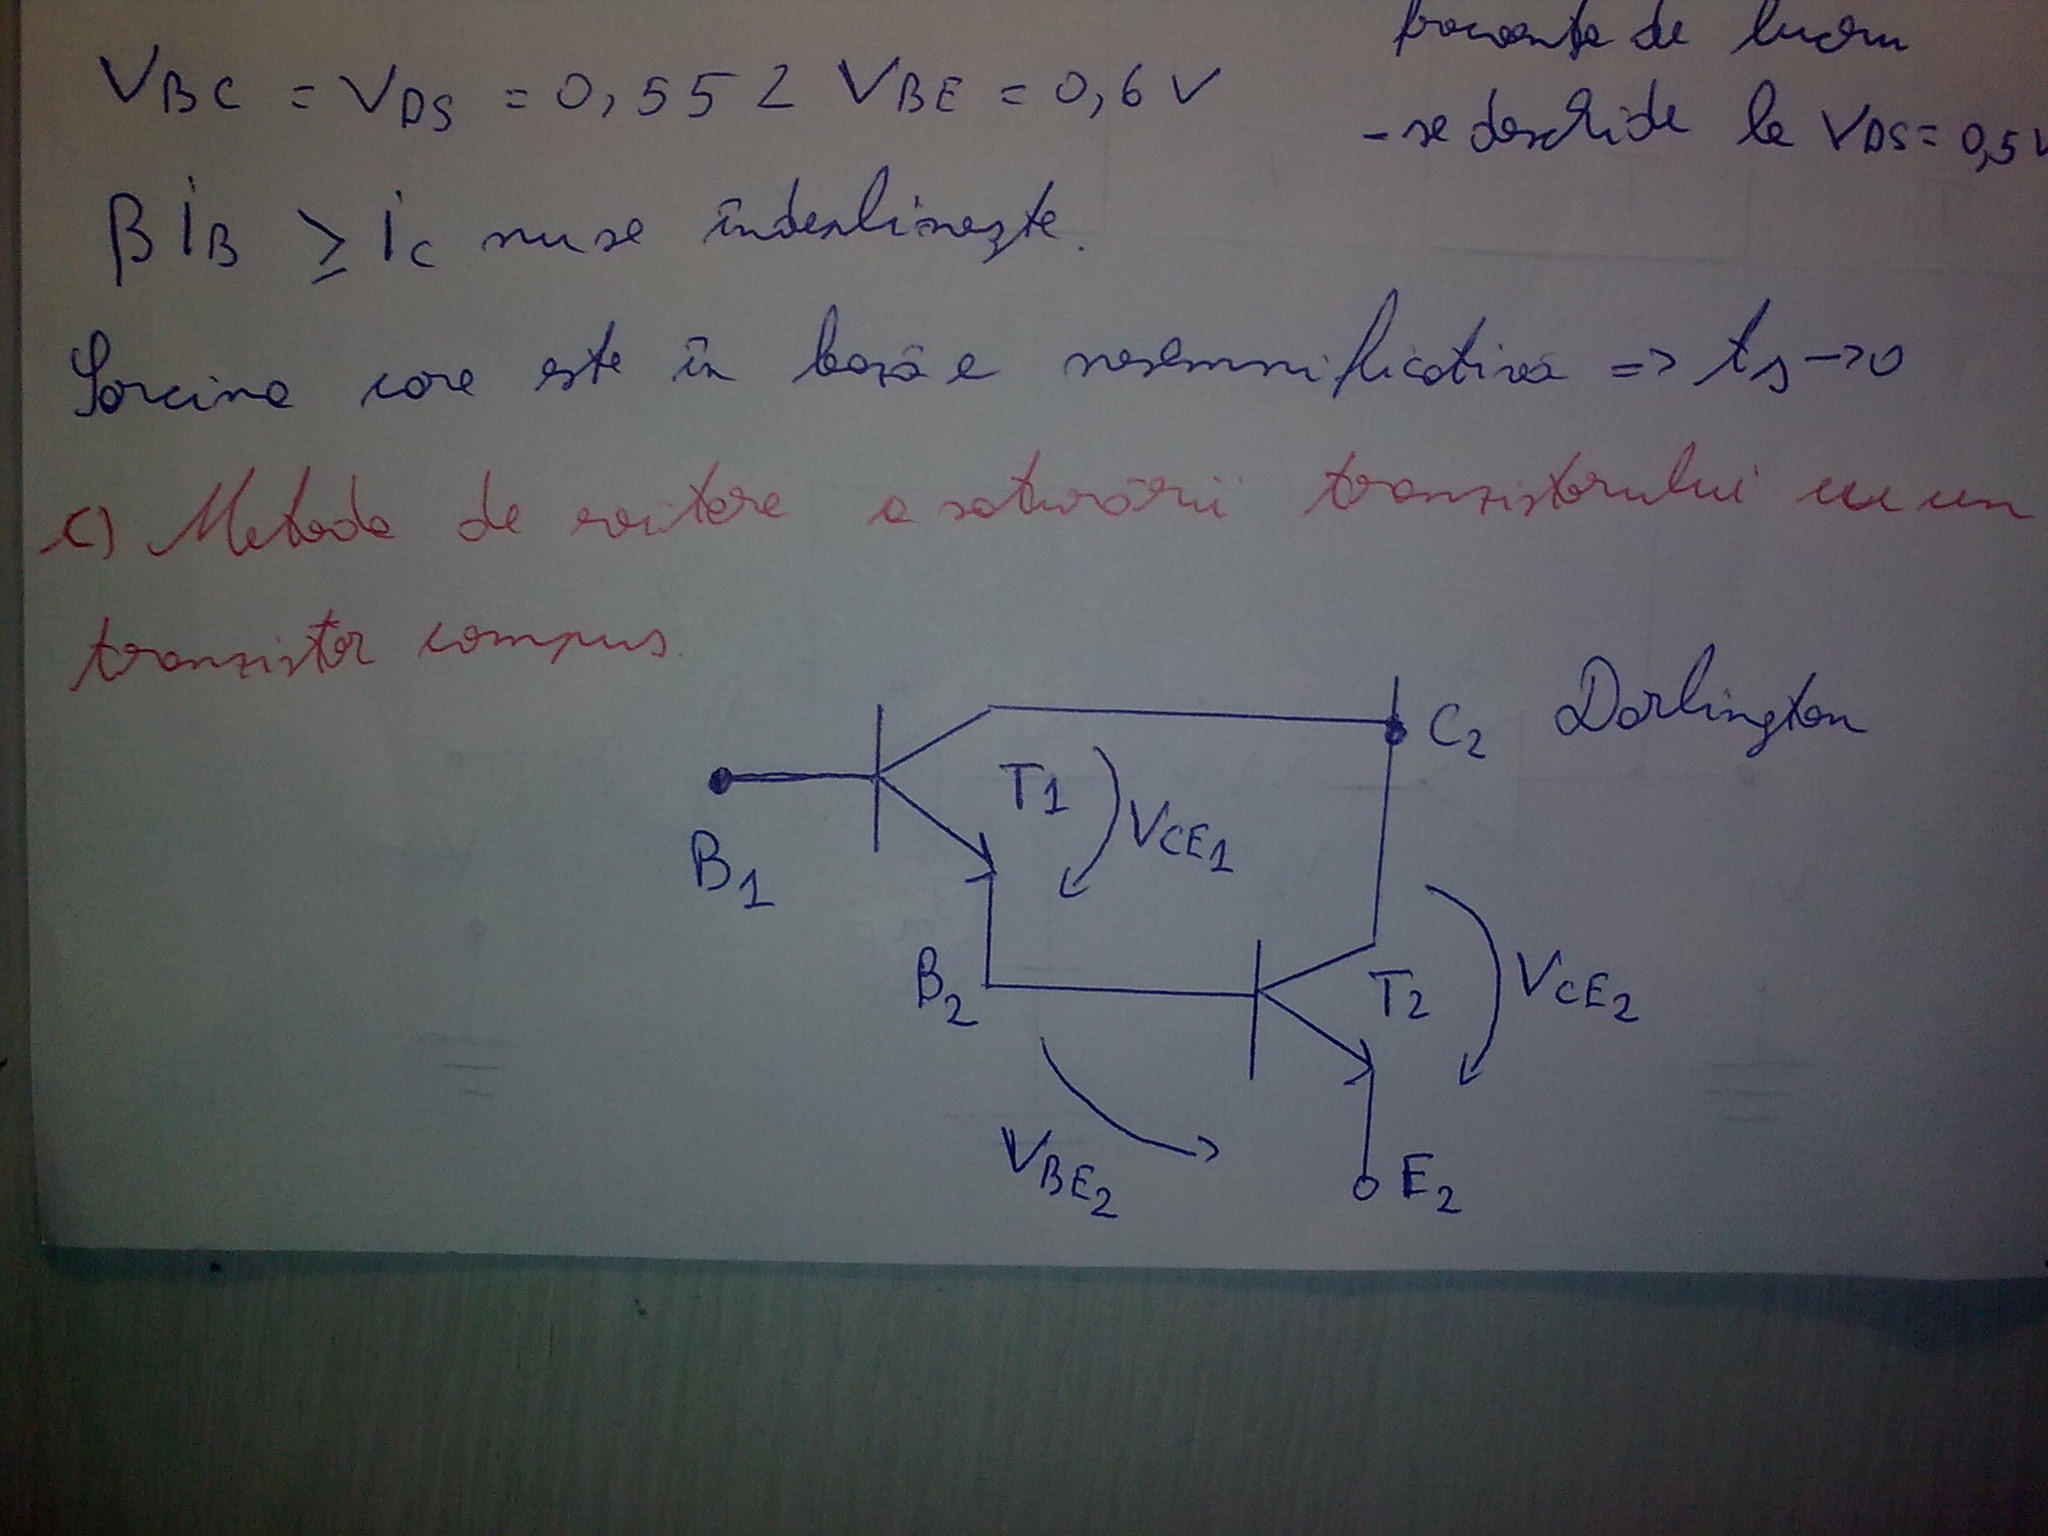 frecvente de lucru
- se deschide la VDS = 0,5V
VBC = VDS = 0,55 < VBE = 0,6 V
β iB ≥ ic nu se îndeplinește.
Sarcina care este în bază e nesemnificativa => ts → 0
c) Metoda de evitare a saturării tranzistorului cu un
tranzistor compus.
C2 Darlington
T1
VCE1
B1
B2
T2
VCE2
VBE2
E2